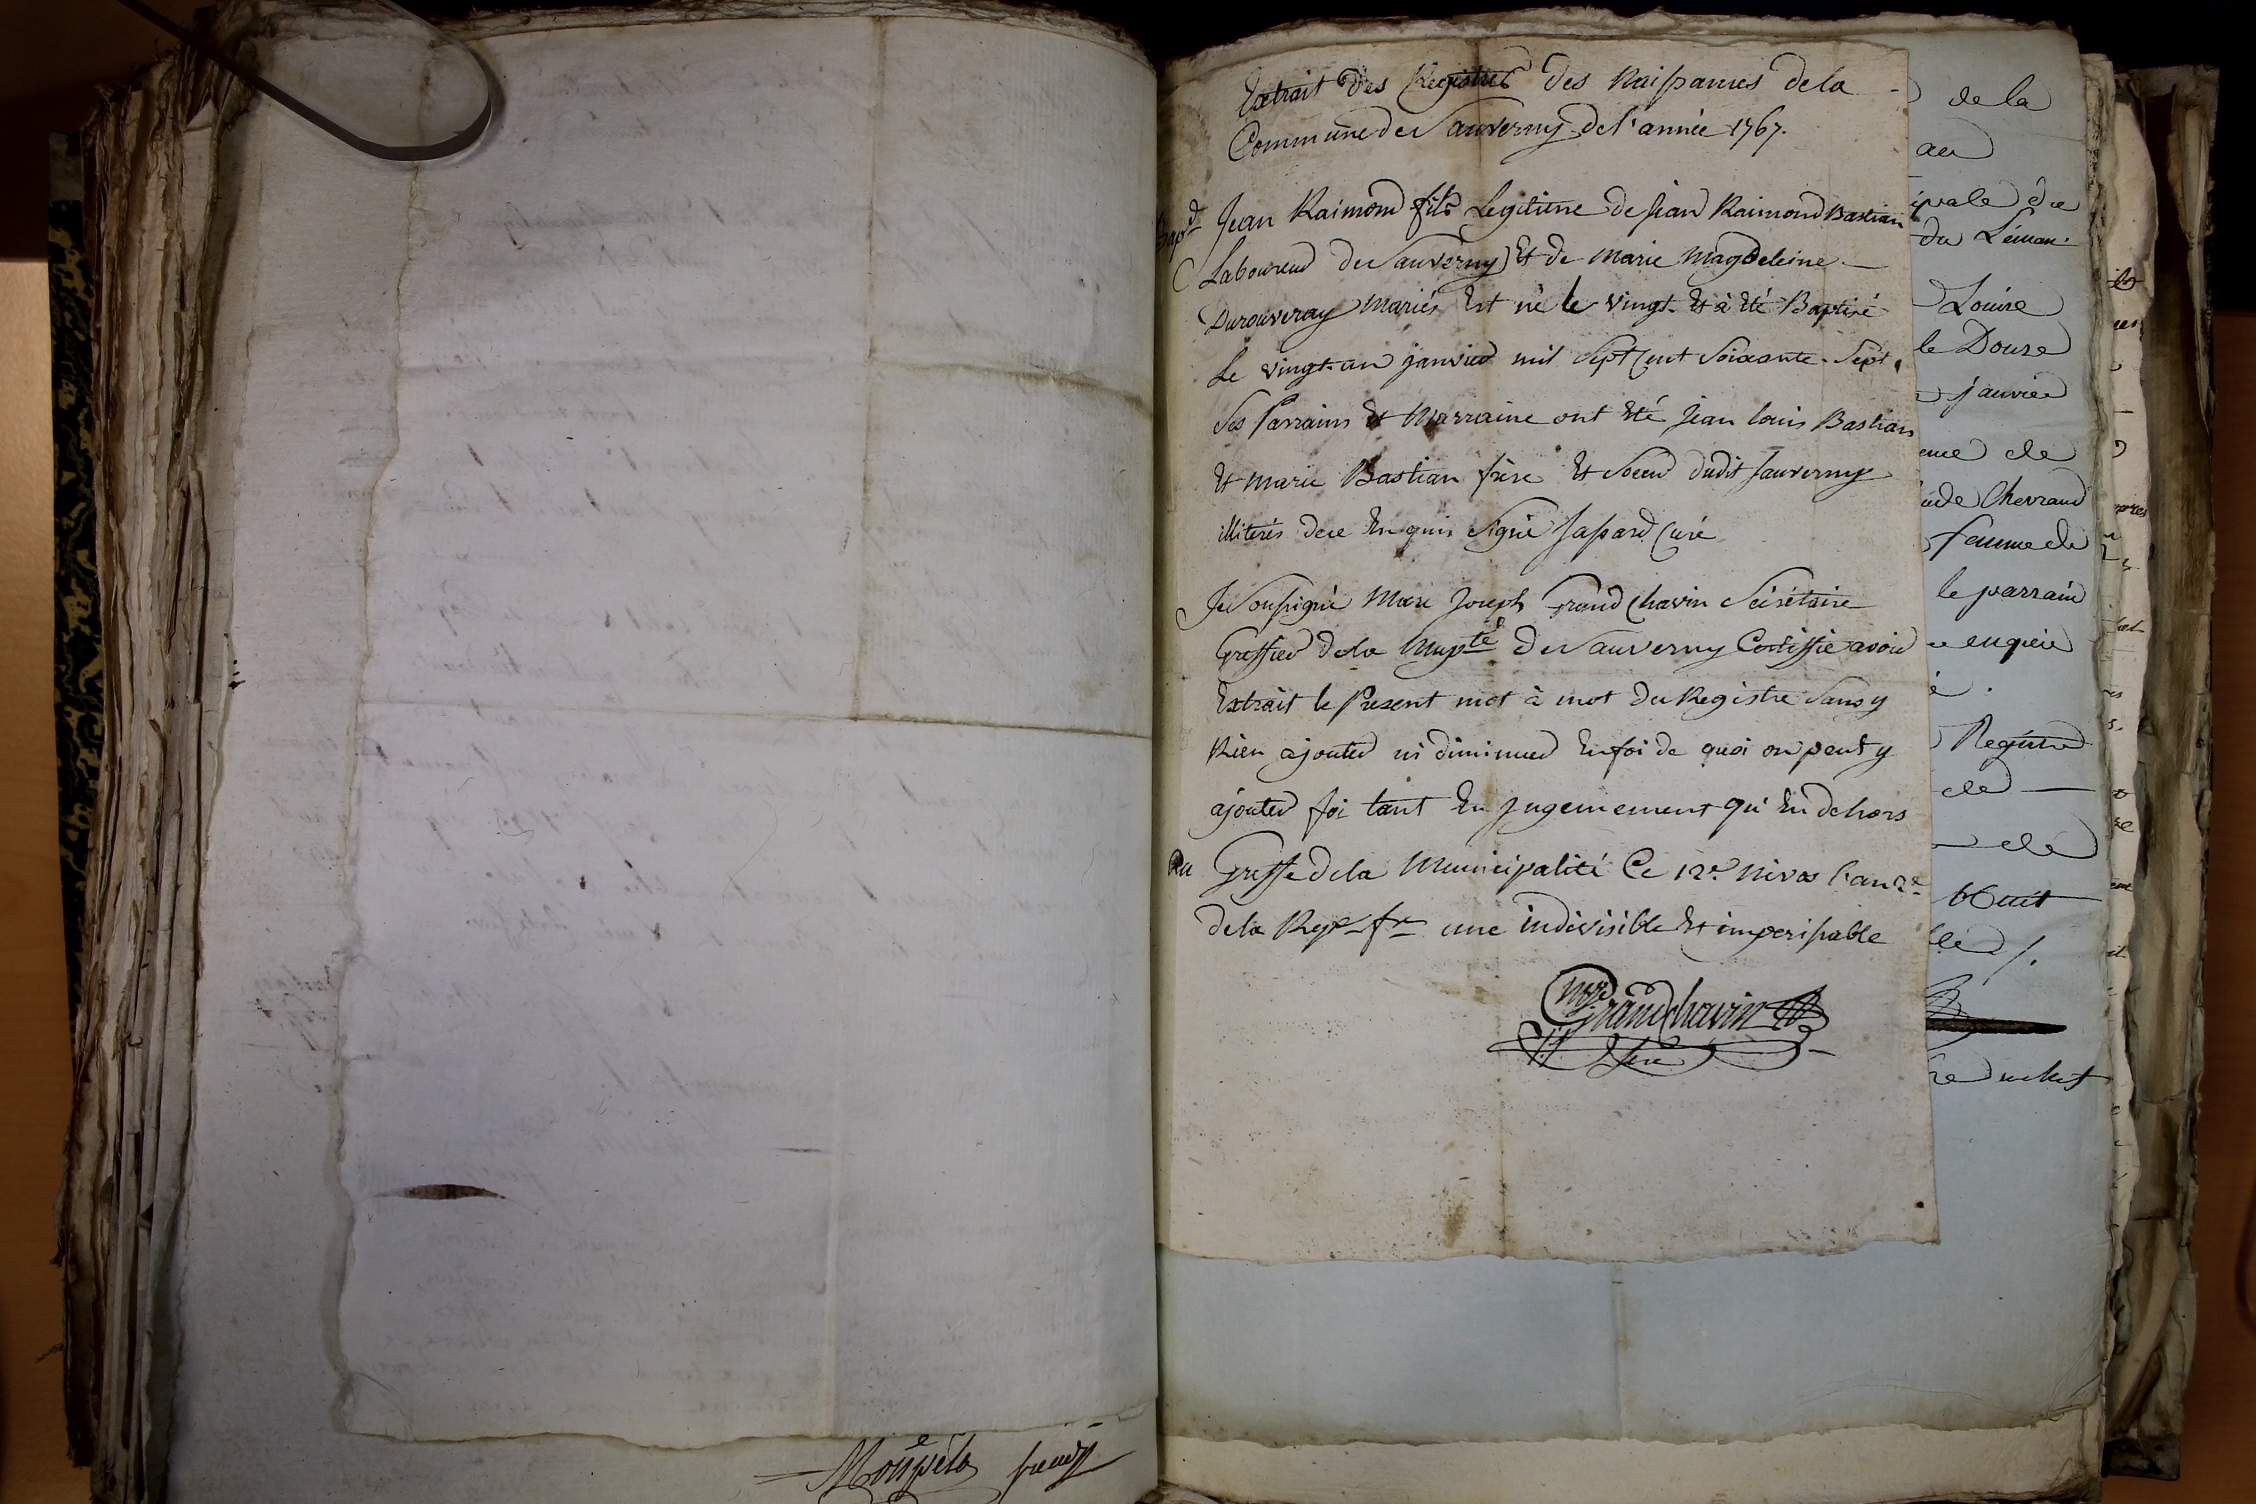 Extrait des Registres des Naissances de la
Commune de Sauverny de l'année 1767.
Bapt
Jean Raimond fils Legitime de Jean Raimond Bastian
Laboureur de Sauverny Et de Marie Magdeleine
Durouveray Mariés Est né le vingt Et à Eté Baptisé
Le vingt-un janvier mil Sept Cent Soixante Sept.
Ses Parrains Et Marraine ont Eté Jean louis Bastian
Et Marie Bastian frère Et Soeur dudit Sauverny
illiterés de ce Enquis Signé Curé
Je Soussigné Marc Joseph Grand Chavin Sécrétaire
Greffier de la Mupté De Sauverny Certiffie avoir
Extrait le Present mot à mot du Registre Sans y
Rien ajouter ni diminuer En foi de quoi on peut y
ajouter foi tant En Jugemement qu'En dehors
Au Greffe de la Municipalité Ce 12e Nivos l'an 2e
de la Repe fr une indivisible Et imperissable
Grandchavin
de la
au
ipale de
du Léman.
Louise
le Douze
janvier
ence de
ude Chevrand
femme de
le parrain
enquis
é.
Registre
de
de
huit